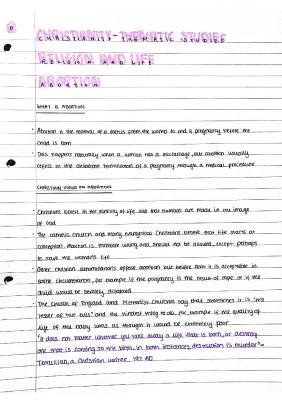 CHRISTIANITY-THEMATIC STUDIES
RELIGION AND LIFE
ABORTION
WHAT IS ABORTION
• Abortion is the removal of a foetus from the womb to end a pregnancy before the
child is born
• This happens naturally when a woman has a miscarriage, but abortion usually
refers to the deliberate termination of a pregnancy through a medical procedure
CHRISTIAN VIEWS ON ABORTION
• Christians believe in the sanctity of life and that humans are made in the image
of God
• The catholic church and many evangelical Christians believe that life starts at
conception. Abortion is therefore wrong and should not be allowed, except perhaps
to save the woman's life
• Other christian denominations oppose abortion but believe that it is acceptable in
some circumstances, for example if the pregnancy is the result of rape or if the
child would be severely disabled
• The Church of England and Methodist Churches say that sometimes it is "the
lesser of two evils" and the kindest thing to do, for example if the quality of
life of the baby looks as though it would be extremely poor
• "It does not matter whether you take away a life that is born, or destroy
one that is coming to the birth. in both instances, destruction is murder" -
Tertullian, a Christian writer 197 AD